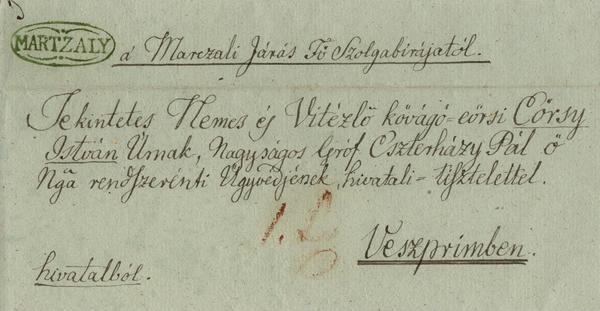 MARTZALY
á Marczali Járás Fő Szolgabirájától.
Tekintetes Nemes és Vitézlő kővágó=eörsi Cörsy
István Úrnak, Nagyságos Gróf Eszterházy Pál ő
Nga rendszerénti Ügyvédjének, hivatali=tisztelettel.
Veszprimben.
hivatalból.